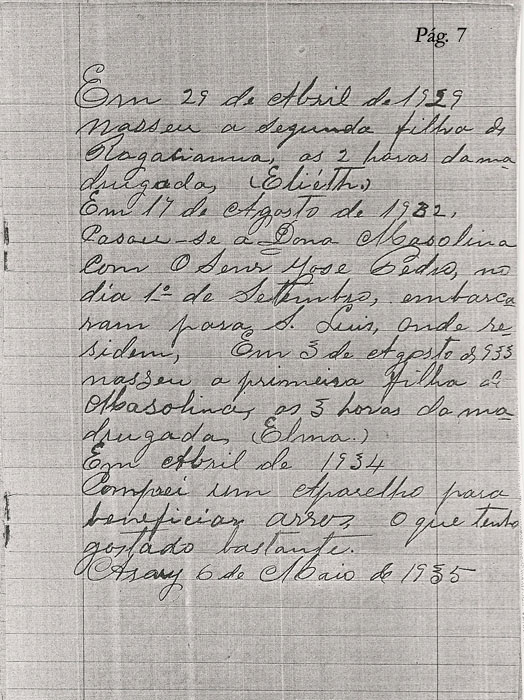 Pág. 7
Em 29 de Abril de 1929
nasseu a segunda filha de
Ragacianna, as 2 horas da ma
drugada, (Eliéth.)
Em 17 de Agosto de 1932,
Casou-se a Dona Masolina
Com O Senr José Pedro, no
dia 1º de Setembro, embarca
ram para S. Luis, onde re-
sidem, Em 3 de Agosto de 933
nasseu a primeira filha de
Masolina, as 3 horas da ma
drugada, (Elma.)
Em Abril de 1934
Comprei um Aparelho para
beneficiar arros, O que tenho
gostado bastante.
6 de Maio de 1935